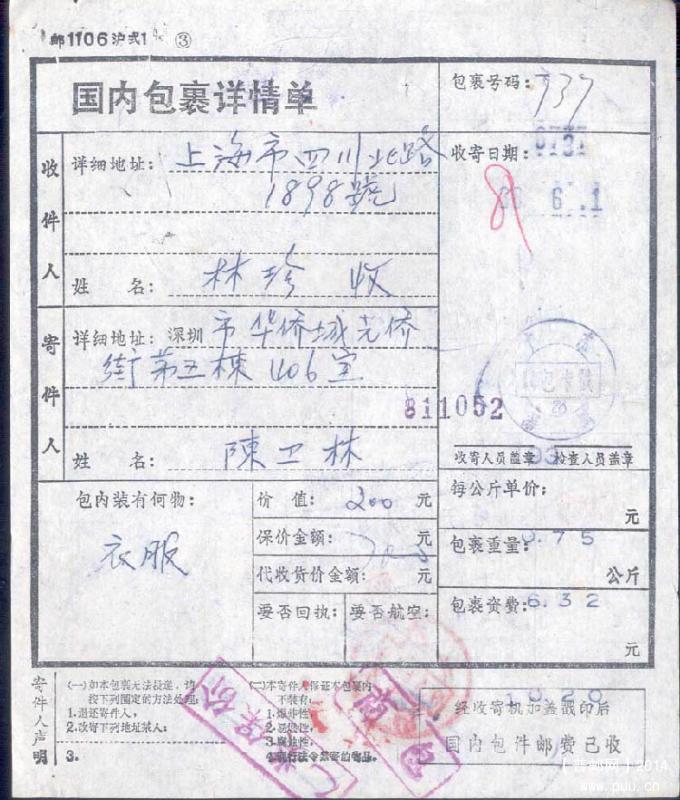 邮1106沪式1 ③
国内包裹详情单
包裹号码: 737
收件人
详细地址: 上海市四川北路
1898號
姓 名: 林珍 收
收寄日期:
6.1
寄件人
详细地址: 深圳市华侨城光侨
街第五栋406室
811052
姓 名: 陳卫林
收寄人员盖章 检查人员盖章
包内装有何物:
衣服
价 值: 200 元
保价金额: 元
代收货价金额: 元
要否回执: 要否航空:
每公斤单价: 元
包裹重量: 0.75 公斤
包裹资费: 6.32 元
寄件人声明
(一)如本包裹无法投递,请
按下列指定的方法处理:
1.退还寄件人,
2.改寄下列地址某人:
3.
(二)本寄件人保证本包裹内
不装有:
1.爆炸性,
2.易燃性,
3.腐蚀性,
保价
10.20
经收寄机加盖戳印后
国内包件邮费已收
【普邮网】2014
www.puu.cn